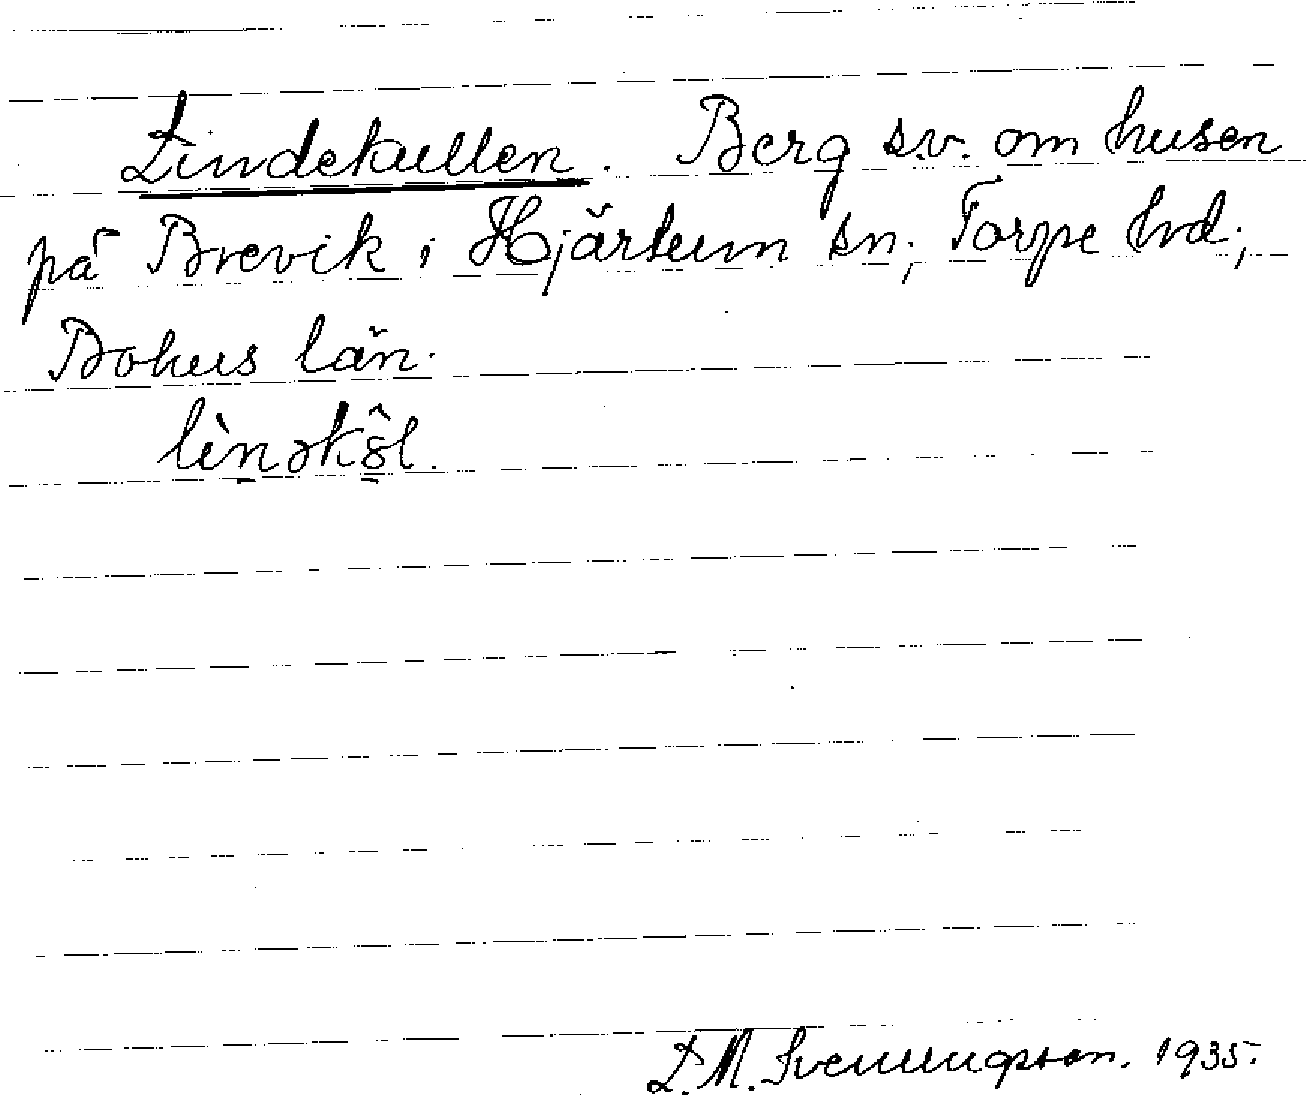 Lindekullen. Berg s.v. om husen
på Brevik i Hjärtum sn; Torpe hrd;
Bohus län.
L. M. Svenungsson. 1935.